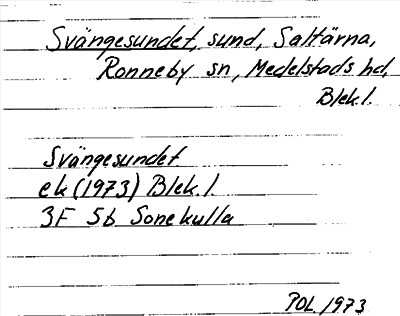 Svängesundet, sund, Saltärna,
Ronneby sn, Medelstads hd,
Blek.l.
Svängesundet
ek (1973) Blek.l.
3F 5b Sonekulla
POL 1973